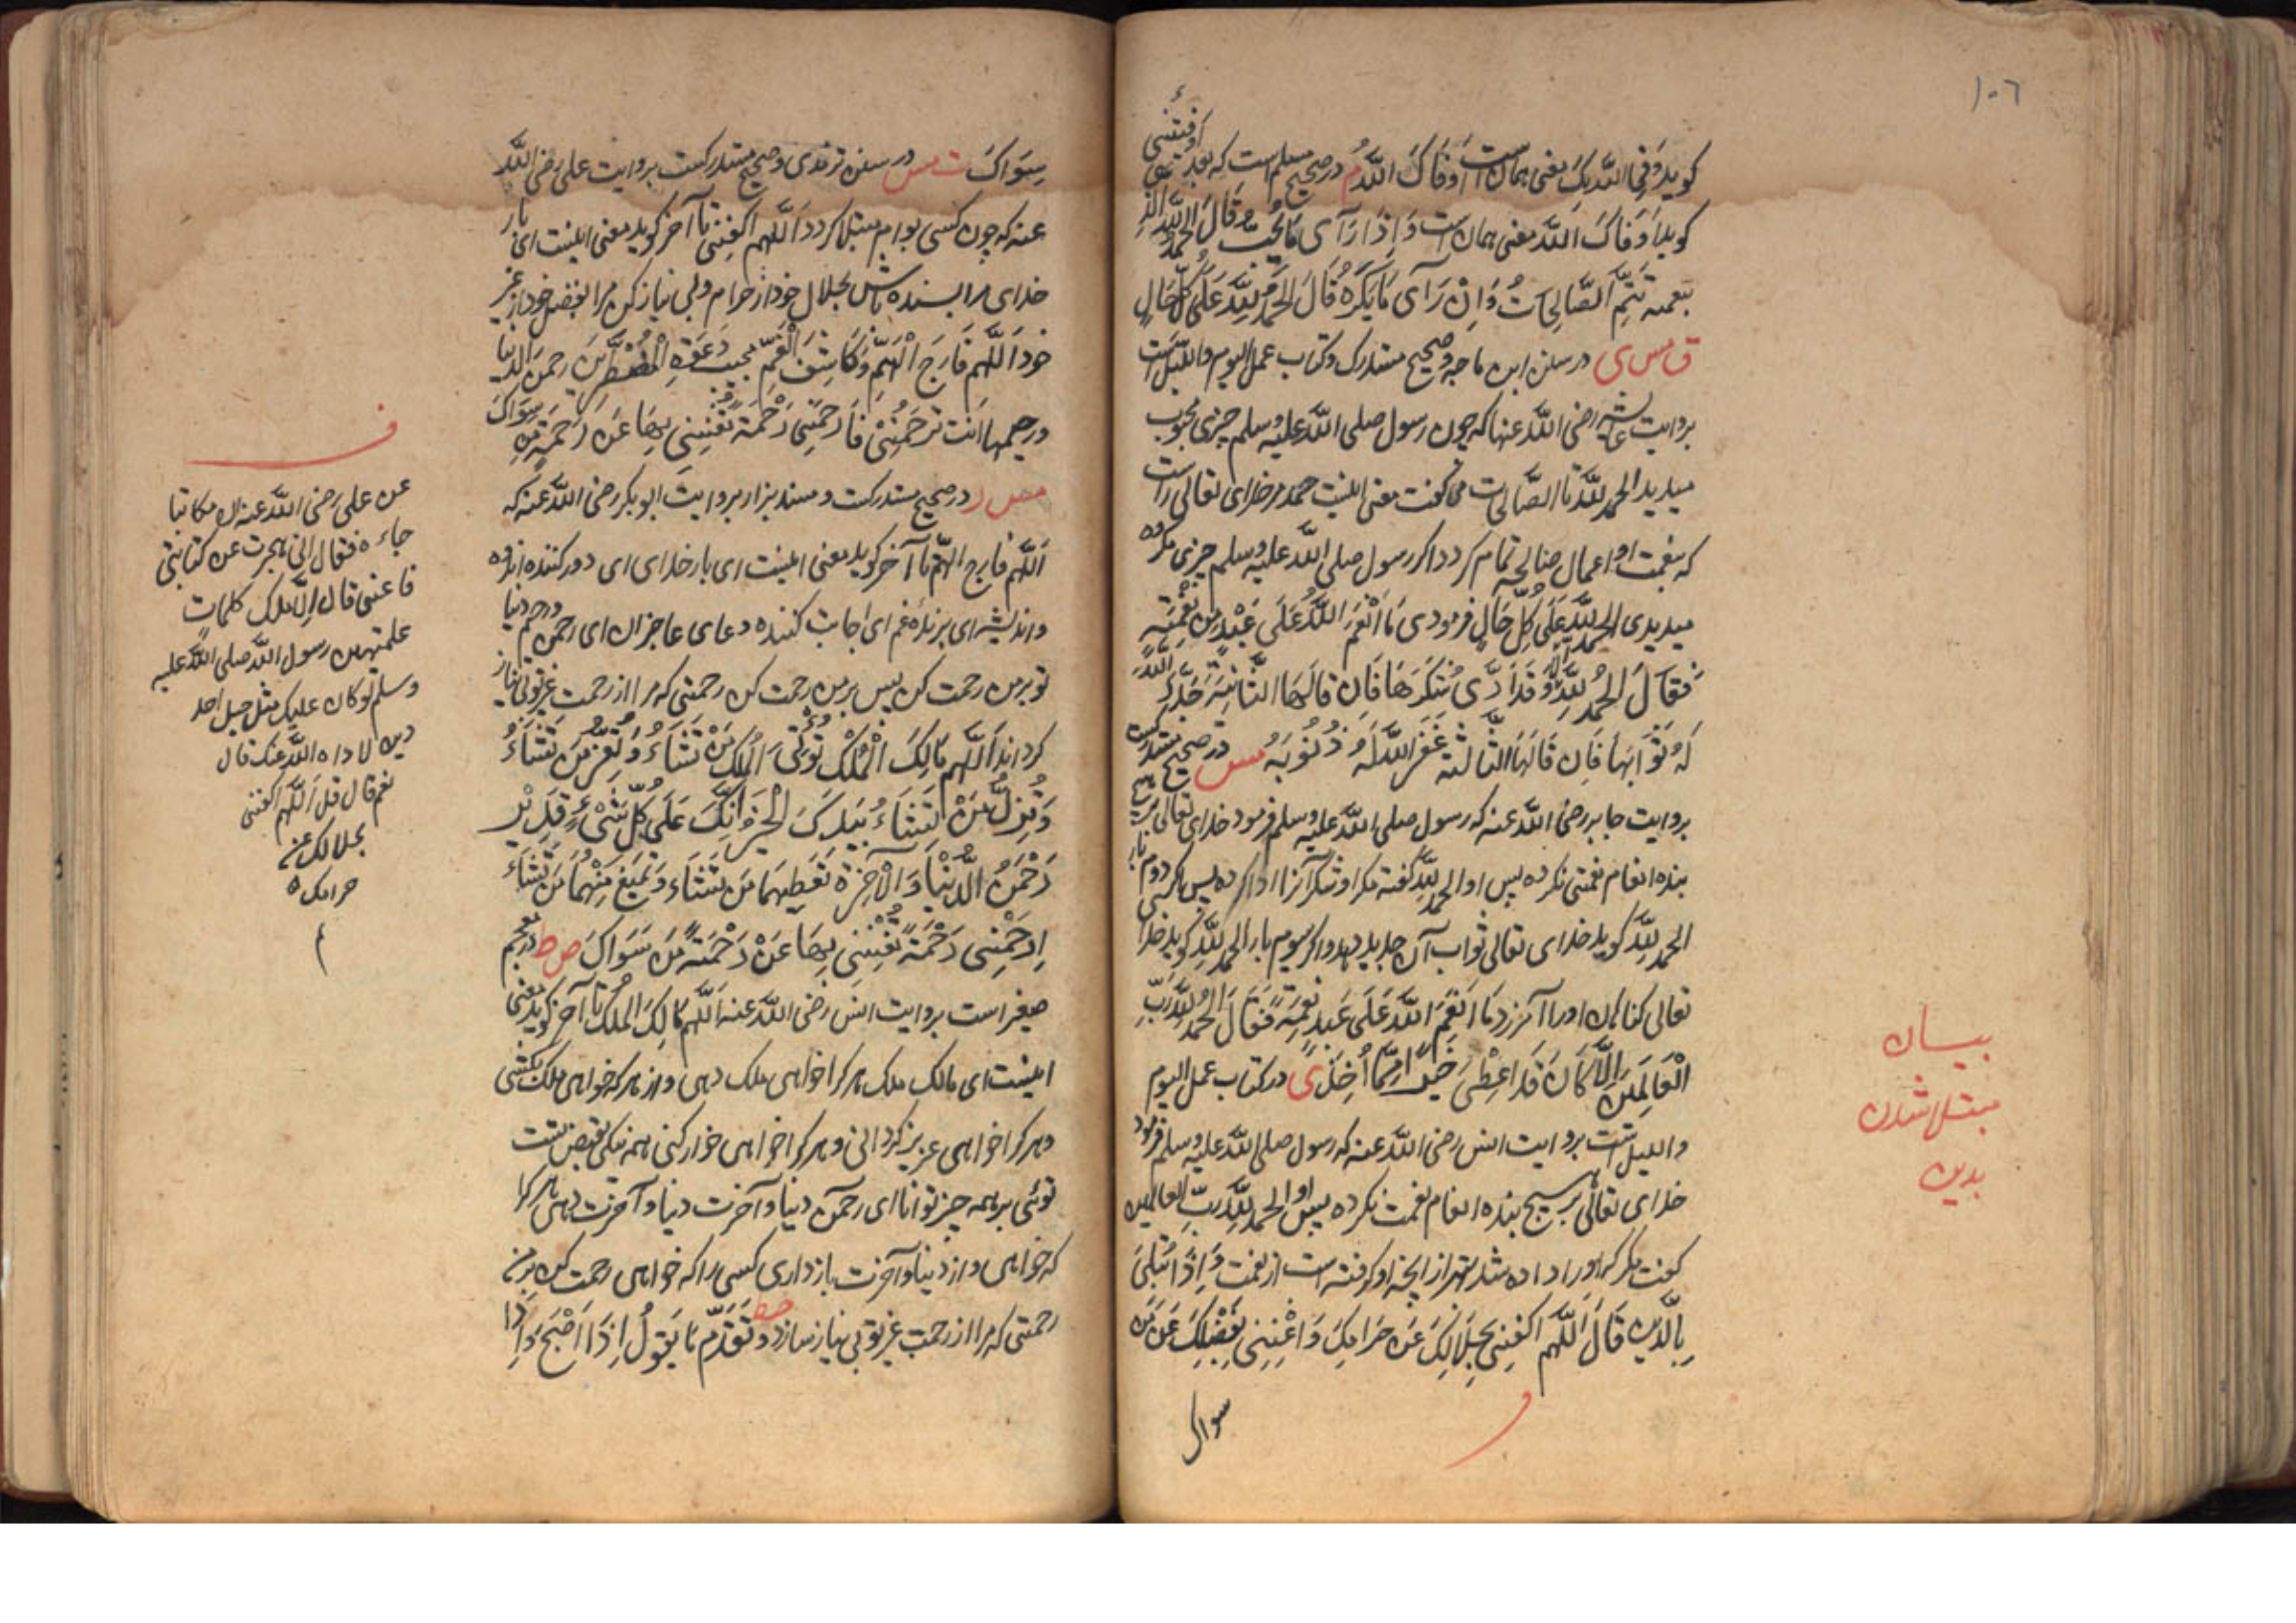 ١٠٦
اوفتنی
کوید وَفی اللّٰه بِکَ معنی همان است اَوفَاکَ اللّٰه م در صحیح مسلم است که بعد
کوید اَوفَاکَ اللّٰه معنی همان است وَاِذَا رَآی مَا یُحِبُّ قَالَ الحَمدُ لِلّٰهِ الَّذِی
بنعمته تَتِمُّ الصَّالِحَاتُ وَاِنْ رَآی مَا یَکرَهُ قَالَ الحَمدُ لِلّٰهِ عَلَی کُلِّ حَالٍ
ق مس ی در سنن ابن ماجه و صحیح مستدرک و کتاب عمل الیوم واللیل است
بروایت عائشه رضی اللّٰه عنها که چون رسول صلی اللّٰه علیه وسلم چیزی محبوب
میدید الحمد للّٰه تا الصالحات می کفت معنی اینست حمد مر خدای تعالی راست
که بنعمت او اعمال صالحه تمام کردد اکر رسول صلی اللّٰه علیه وسلم چیزی مکروه
میدیدی الحمد للّٰه عَلَی کُلِّ حَالٍ فرمودی مَا اَنْعَمَ اللّٰهُ عَلَی عَبْدٍ مِن نِعْمَته
فَقَالَ الحَمدُ لِلّٰهِ اِلَّا وَقَد اَدَّی شُکرَهَا فَاِن قَالَهَا الثَّانِیَة جَدَّدَ اللّٰهُ
لَهُ ثَوَابَهَا فَاِن قَالَهَا الثَّالثَة غَفَرَ اللّٰه لَهُ ذُنُوبَهُ مس در صحیح مستدرکست
بروایت جابر رضی اللّٰه عنه که رسول صلی اللّٰه علیه وسلم فرمود خدای تعالی بر هیچ
بنده انعام نعمتی نکرده پس او الحمد للّٰه کفته مکر او شکر آنرا ادا کرده پس اکر دوم بار
الحمد للّٰه کوید خدای تعالی ثواب آن جدید دهد و اکر سوم بار الحمد للّٰه کوید خدا
تعالی کناهان او را آمرزد مَا اَنعَمَ اللّٰه عَلَی عَبدٍ نِعمَةً فَقَالَ الحَمدُ لِلّٰهِ رَبِّ
الْعَالَمِینَ اِلَّا کَانَ قَد اَعْطَیَ خَیرًا مِمَّا اَخَذَ ی در کتاب عمل الیوم
واللیل است بروایت انس رضی اللّٰه عنه که رسول صلی اللّٰه علیه وسلم فرمود
خدای تعالی بر هیچ بنده انعام نعمت نکرده پس او الحمد للّٰه ربّ العالمین
کفت مکر که او را داده شد بهتر از آنچه او کرفته است از نعمت وَاِذَا ابْتُلِیَ
بِالدَّینِ قَالَ اَللّٰهُمَّ اکفِنِی بِحَلَالِکَ عَن حَرَامِکَ وَاغْنِنِی بِفَضْلِکَ عَن مَن
سواک
بیسان
مبتلا شدن
بدین
سِوَاکَ ت مس در سنن ترمذی و صحیح مستدرکست بروایت علی رضی اللّٰه
عنه که چون کسی بوام مبتلا کردد اَللّٰهُمَّ اکفِنِی تا آخر کوید معنی اینست ای بار
خدای مرا بسنده باش بحلال خود از حرام و بی نیاز کن مرا بفضل خود از غیر
خود اَللّٰهُمَّ فَارِجَ الْهَمِّ وَکَاشِفَ الْغَمِّ مجیب دَعوَةِ الْمُضْطَرِّینَ رحمن الدنیا
ورحیمها اَنتَ تَرحَمُنِیْ فَارحَمْنِی رَحْمَةً تُغْنِینِی بِهَا عَن رَحمَةِ مَن سِوَاکَ
مس ر در صحیح مستدرکست و مسند بزار بروایت ابو بکر رضی اللّٰه عنه که
اَللّٰهُمَّ فارج الهمّ تا آخر کوید معنی اینست ای بار خدای ای دور کننده اندوه
واندیشه ای برنده غم ای اجابت کننده دعای عاجزان ای رحمن و رحیم دنیا
تو بر من رحمت کن پس بر من رحمت کن رحمتی که مرا از رحمت غیر تو بی نیاز
کرداند اَللّٰهُمَّ مَالِکَ الْمُلْکِ تُؤتِی الْمُلکَ مَنْ تَشَاءُ وَتُعِزُّ مَن تَشَاءُ
وَتُذِلُّ مَنْ تَشَاءُ بِیَدِکَ الْخَیر اِنَّکَ عَلَی کُلِّ شَیْءٍ قَدِیْر
رَحْمَنُ الدُّنْیَا وَالْآخِرَة تُعطِیهِمَا مَن تَشَاء وَتَمنَعُ مِنْهُمَا مَن تَشَاء
اِرحَمْنِی رَحْمَةً تُغْنِینِی بِهَا عَنْ رَحْمَة مَن سِوَاکَ صط در معجم
صغیر است بروایت انس رضی اللّٰه عنه اَللّٰهُمَّ مَالِکَ الملک تا آخر کوید معنی
اینست ای مالک ملک هر کرا خواهی ملک دهی و از هر که خواهی ملک بکشی
و هر کرا خواهی عزیز کردانی و هر کرا خواهی خوار کنی همه نیکی بقبض تست
توئی بر همه چیز توانا ای رحمن دنیا و آخرت دنیا و آخرت دهی هر کرا
که خواهی و از دنیا و آخرت بازداری کسی را که خواهی رحمت کن بر من
رحمتی که مرا از رحمت غیر تو بی نیاز سازد وَتَقَدَّم مَا یَقُولُ اِذَا اَصْبَحَ وَاِذَا
ف
عن علی رضی اللّٰه عنه ان مکاتبا
جاءه فقال انی عجزت عن کتابتی
فاعنی قال الا اعلمک کلمات
علمنیهن رسول اللّٰه صلی اللّٰه علیه
وسلم لو کان علیک مثل جبل احد
دین لاداه اللّٰه عنک قال
نعم قال قل اللّٰهم اکفنی
بحلالک عن
حرامک ه